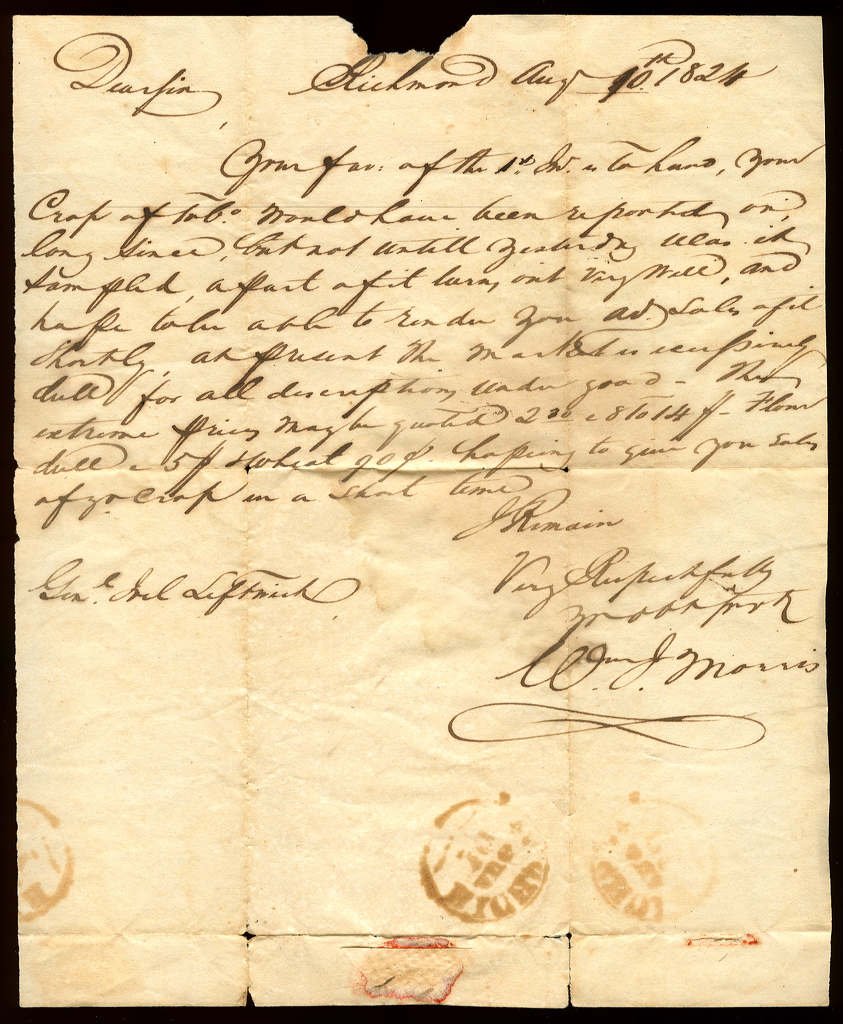 Dear Sir, Richmond Aug 10th 1824
Your fav: of the 1st Int. is to hand, your
Crop of Tobo. would have been reported on,
long since, but not untill yesterday was it
Sampled, a part of it turns out Very Well, and
hope to be able to render you ad. Sales of it
Shortly, at present the market is excessively
dull for all descriptions under good - The
extreme prices may be quoted 2 50 a 8 to 14 $ - Flour
dull a 5$ & Wheat 90¢. hoping to give you Sales
of yr Crop in a Short time
I Remain
Very Respectfully
yr obt Servt
Wm J. Morris
Genl. Joel Leftwich
RICHD
AUG
10